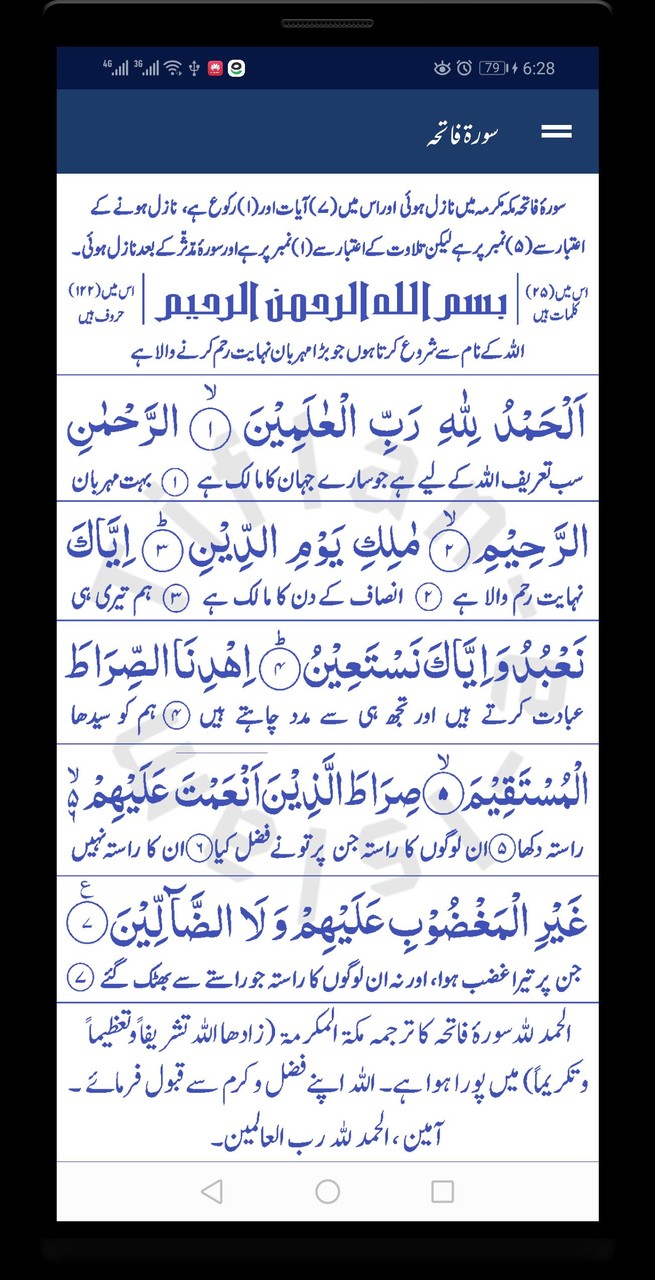 4G 3G 79 6:28
سورۃ فاتحہ
سورۂ فاتحہ مکہ مکرمہ میں نازل ہوئی اور اس میں (۷) آیات اور (۱) رکوع ہے، نازل ہونے کے
اعتبار سے (۵) نمبر پر ہے لیکن تلاوت کے اعتبار سے (۱) نمبر پر ہے اور سورۂ مدّثّر کے بعد نازل ہوئی۔
اس میں (۲۵) کلمات ہیں
بسم الله الرحمن الرحيم
اس میں (۱۲۲) حروف ہیں
اللہ کے نام سے شروع کرتا ہوں جو بڑا مہربان نہایت رحم کرنے والا ہے
اَلْحَمْدُ لِلّٰهِ رَبِّ الْعٰلَمِيْنَ ۙ﴿۱﴾ الرَّحْمٰنِ
سب تعریف اللہ کے لیے ہے جو سارے جہان کا مالک ہے ﴿۱﴾ بہت مہربان
الرَّحِيْمِ ۙ﴿۲﴾ مٰلِكِ يَوْمِ الدِّيْنِ ؕ﴿۳﴾ اِيَّاكَ
نہایت رحم والا ہے ﴿۲﴾ انصاف کے دن کا مالک ہے ﴿۳﴾ ہم تیری ہی
نَعْبُدُ وَاِيَّاكَ نَسْتَعِيْنُ ؕ﴿۴﴾ اِهْدِنَا الصِّرَاطَ
عبادت کرتے ہیں اور تجھ ہی سے مدد چاہتے ہیں ﴿۴﴾ ہم کو سیدھا
الْمُسْتَقِيْمَ ۙ﴿۵﴾ صِرَاطَ الَّذِيْنَ اَنْعَمْتَ عَلَيْهِمْ ۙ۬
راستہ دکھا ﴿۵﴾ ان لوگوں کا راستہ جن پر تو نے فضل کیا ﴿۶﴾ ان کا راستہ نہیں
غَيْرِ الْمَغْضُوْبِ عَلَيْهِمْ وَلَا الضَّآلِّيْنَ ﴿۷﴾ ع
جن پر تیرا غضب ہوا، اور نہ ان لوگوں کا راستہ جو راستے سے بھٹک گئے ﴿۷﴾
الحمد للہ سورۂ فاتحہ کا ترجمہ مکۃ المکرمۃ (زادھا اللہ تشریفاً وتعظیماً
وتکریماً) میں پورا ہوا ہے۔ اللہ اپنے فضل و کرم سے قبول فرمائے۔
آمین، الحمد للہ رب العالمین۔